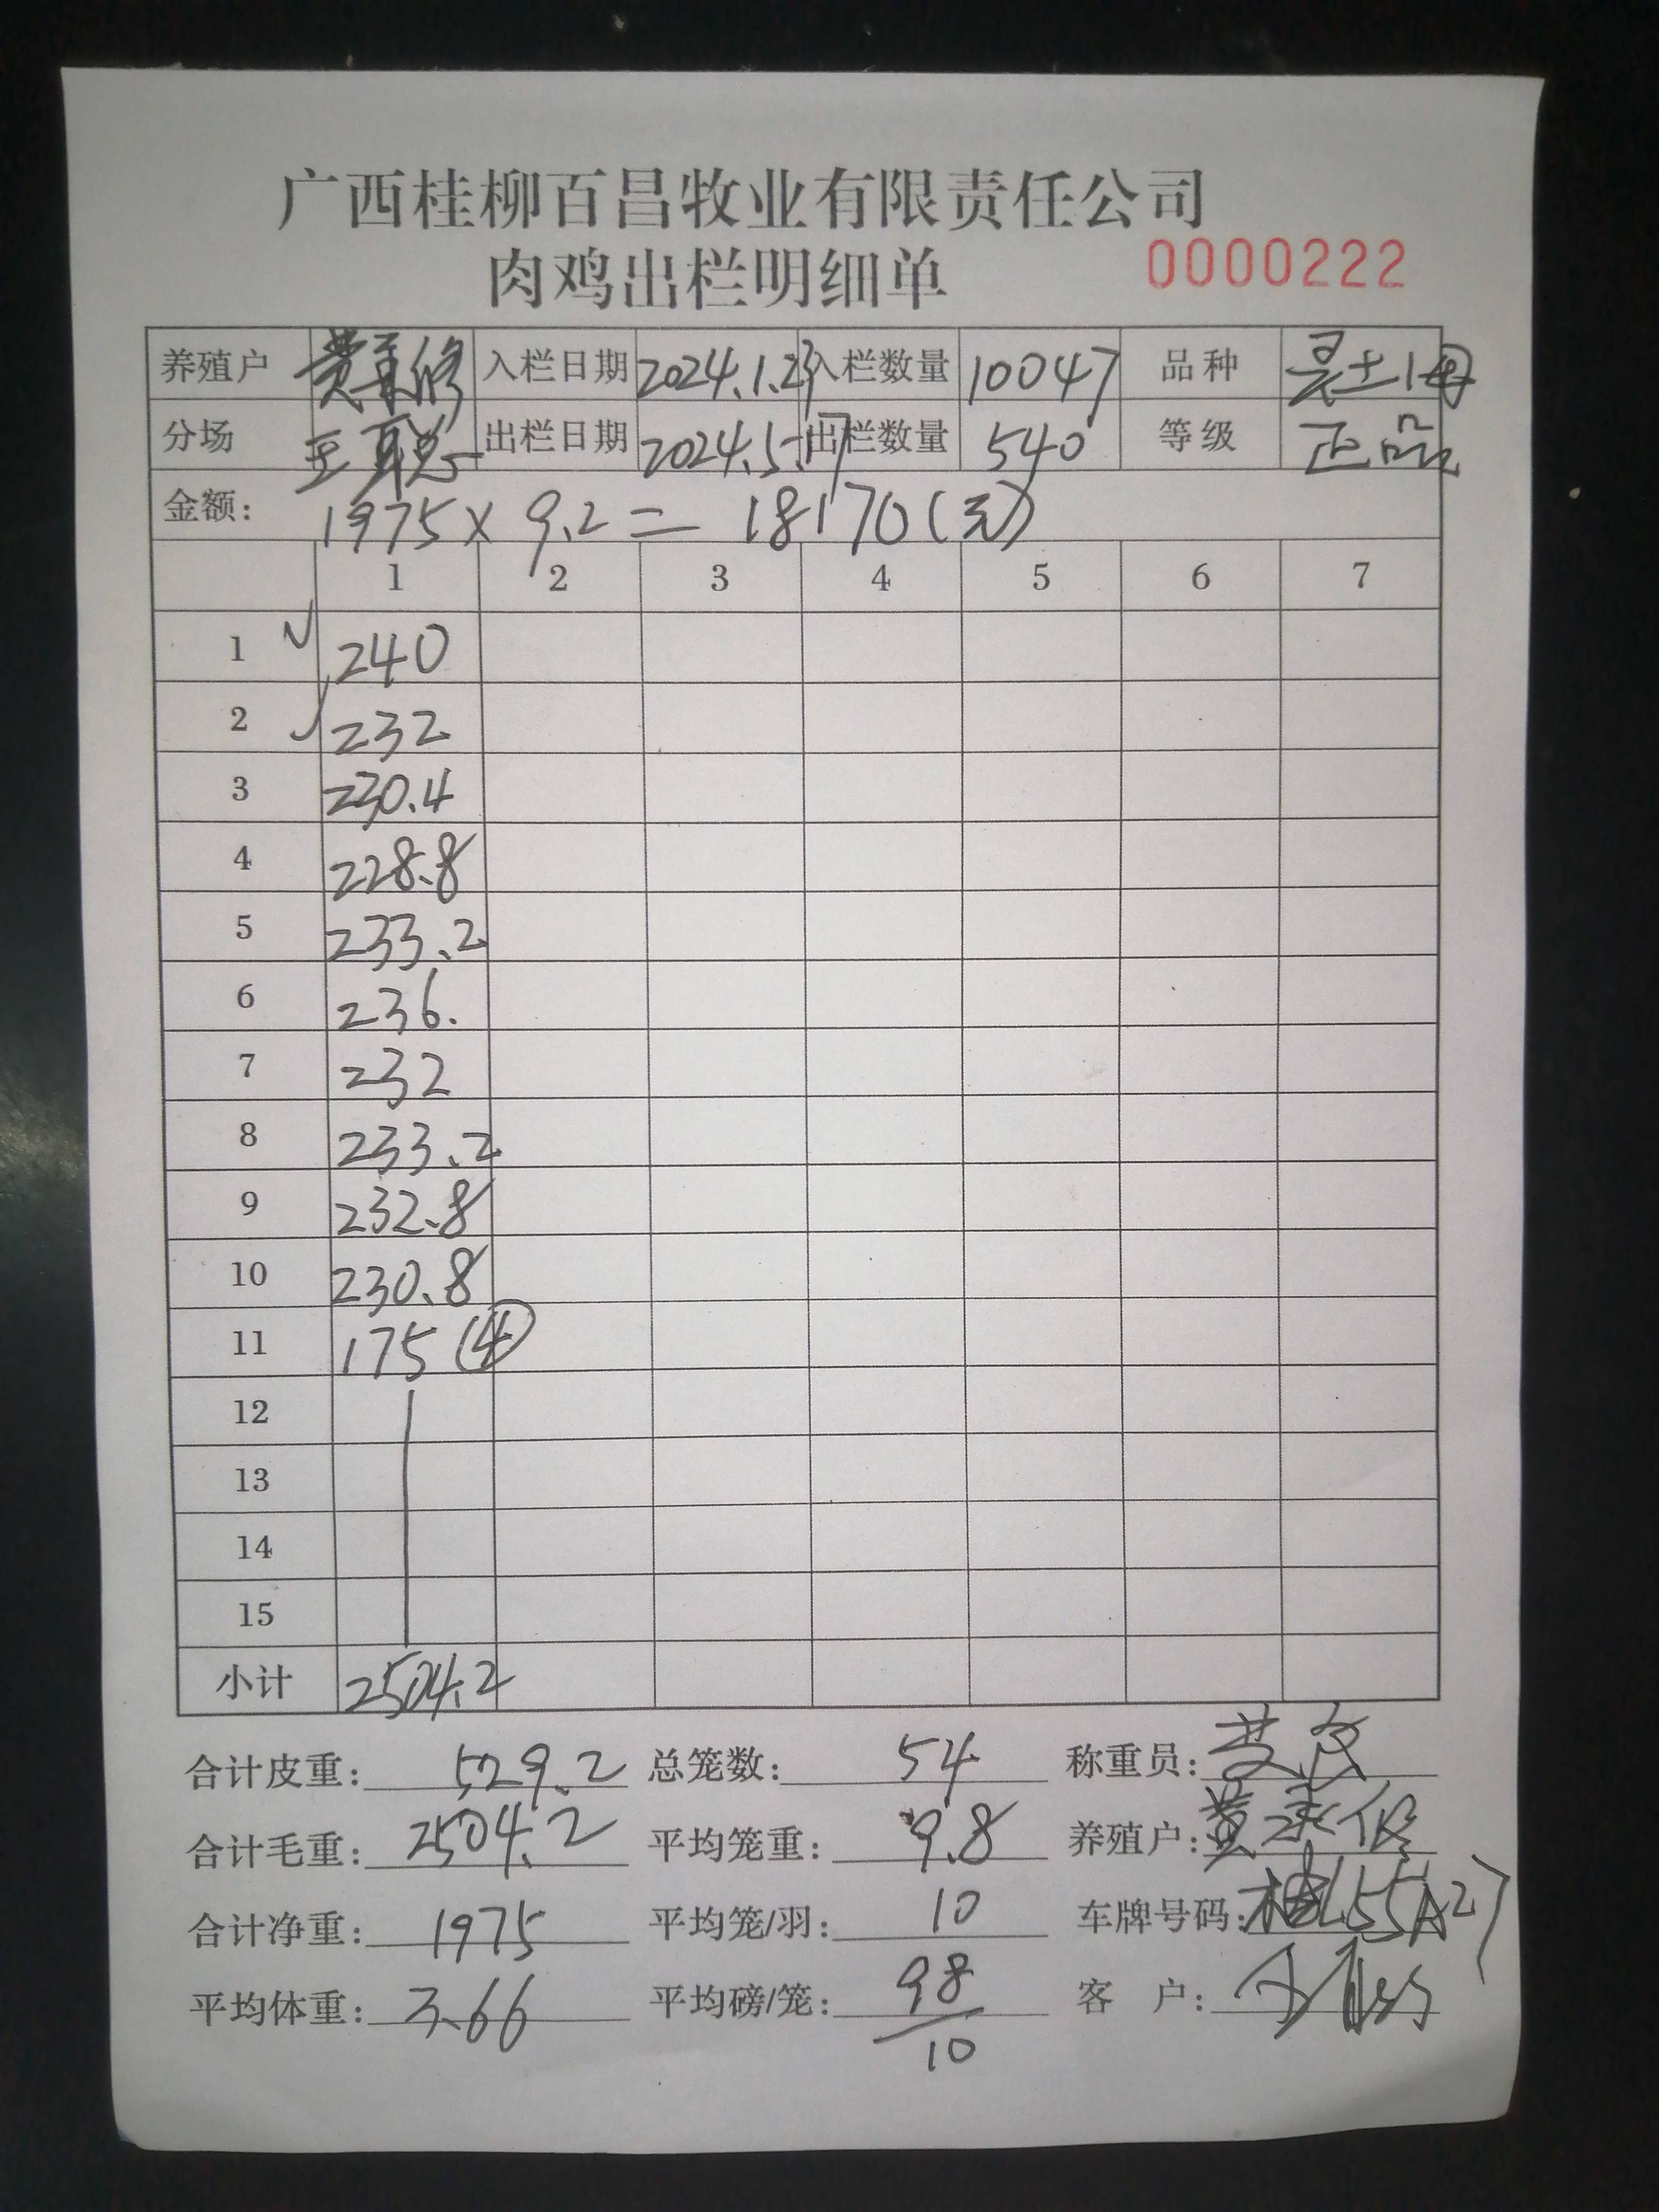 广西桂柳百昌牧业有限责任公司
肉鸡出栏明细单 0000222
养殖户 黄承修 入栏日期 2024.1.23 入栏数量 10047 品种 土1母
分场 王聪 出栏日期 2024.5.17 出栏数量 540 等级 正品
金额: 1975×9.2=18170(元)
1 2 3 4 5 6 7
1 240
2 232
3 230.4
4 228.8
5 233.2
6 236.
7 232
8 233.2
9 232.8
10 230.8
11 175 (4)
12
13
14
15
小计 2504.2
合计皮重: 529.2 总笼数: 54 称重员:
合计毛重: 2504.2 平均笼重: 9.8 养殖户: 黄承修
合计净重: 1975 平均笼/羽: 10 车牌号码:
平均体重: 3.66 平均磅/笼: 98/10 客 户: